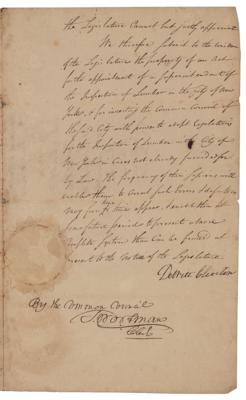 the Legislature cannot but justly appreciate
We therefore submit to the wisdom
of the Legislature the propriety of an Act
for the appointment of a Superintendent of
the Inspection of Lumber in the City of New
York, & for investing the Common Council of
the said City with power to adopt regulations
for the Inspection of Lumber in the City of
New York in Cases not already provided for
by Law. The
to correct such Errors & defects as
may from time to time appear, &
future period to present a more
complete System than can be
present to the Notice of the Legislature.
DeWitt Clinton
By the Common Council
J Wortman
Clerk